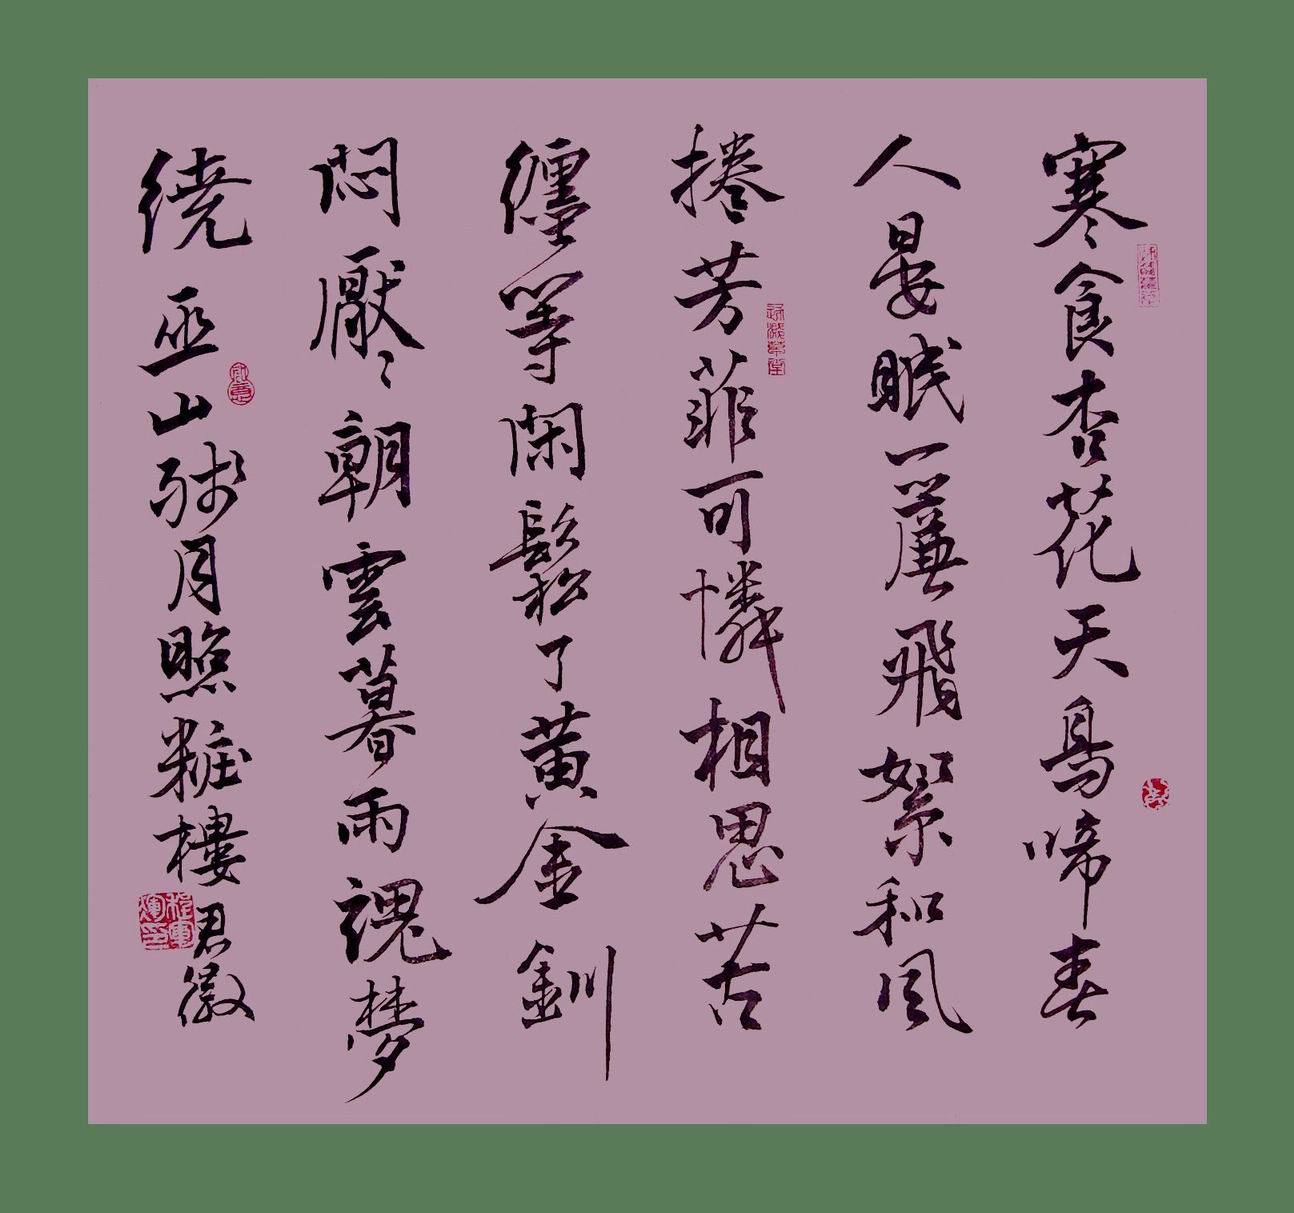 寒食杏花天鳥啼春
人晏眠一簾飛絮和風
捲芳菲可憐相思苦
纏等閑鬆了黃金釧
悶厭厭朝雲暮雨魂夢
繞巫山殘月照粧樓君徽